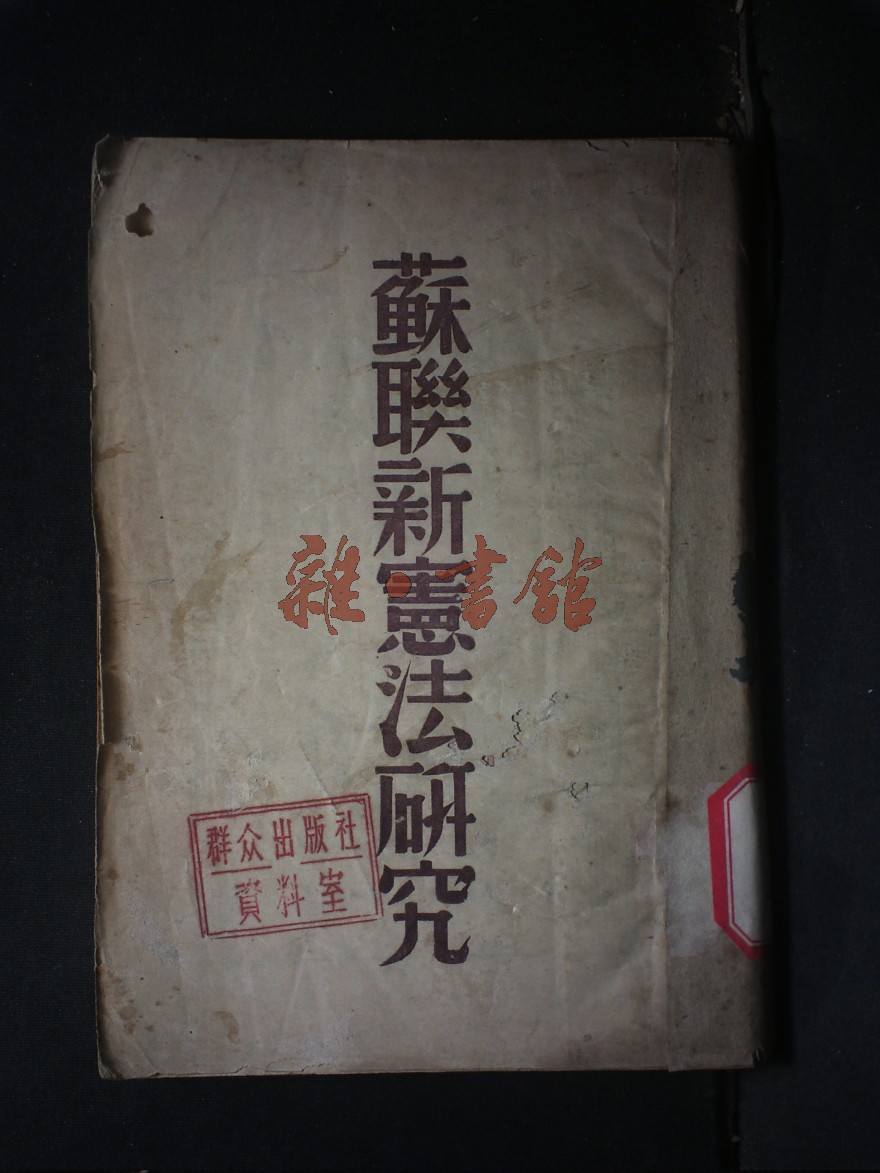 蘇聯新憲法硏究
雜·書舘
群众出版社
資料室